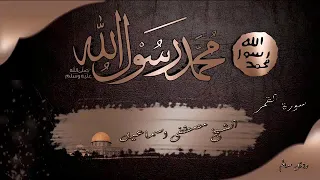 محمد رسول الله
صلى الله عليه وسلم
الله
رسول
محمد
سورة القمر
الشيخ مصطفى إسماعيل